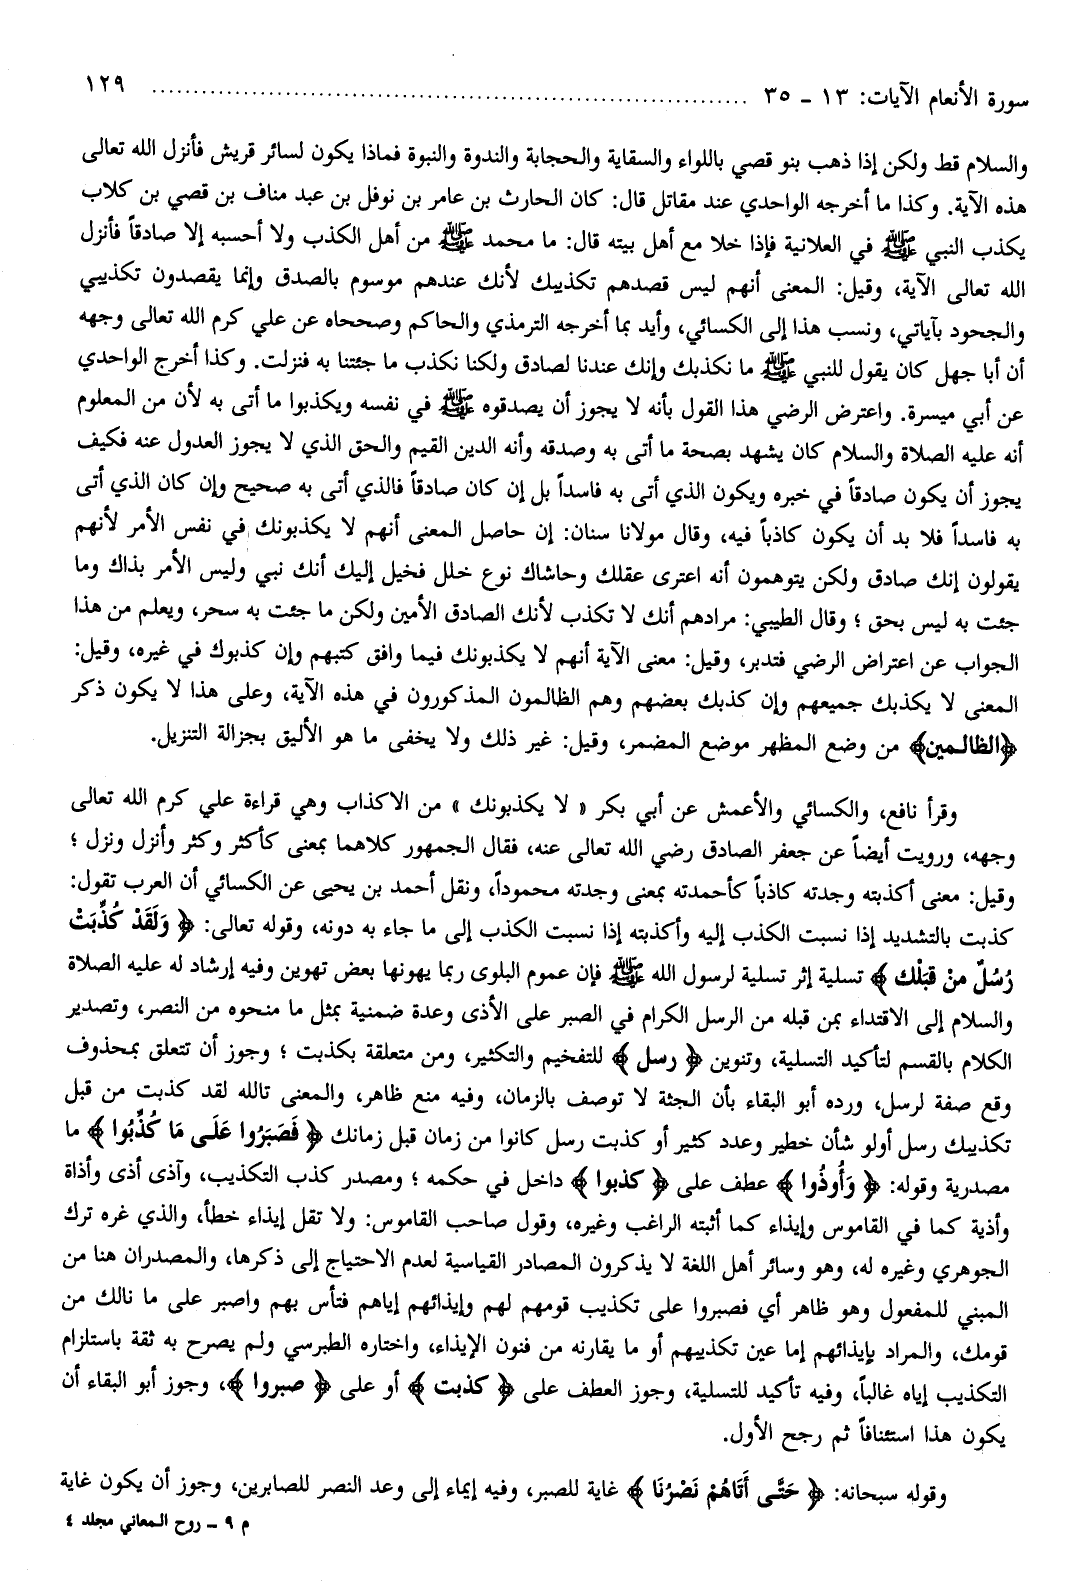 سورة الأنعام الآيات: ١٣ ـ ٣٥ ........................................................................ ١٢٩
والسلام قط ولكن إذا ذهب بنو قصي باللواء والسقاية والحجابة والندوة والنبوة فماذا يكون لسائر قريش فأنزل الله تعالى
هذه الآية. وكذا ما أخرجه الواحدي عند مقاتل قال: كان الحارث بن عامر بن نوفل بن عبد مناف بن قصي بن كلاب
يكذب النبي ﷺ في العلانية فإذا خلا مع أهل بيته قال: ما محمد ﷺ من أهل الكذب ولا أحسبه إلا صادقاً فأنزل
الله تعالى الآية، وقيل: المعنى أنهم ليس قصدهم تكذيبك لأنك عندهم موسوم بالصدق وإنما يقصدون تكذيبي
والجحود بآياتي، ونسب هذا إلى الكسائي، وأيد بما أخرجه الترمذي والحاكم وصححاه عن علي كرم الله تعالى وجهه
أن أبا جهل كان يقول للنبي ﷺ ما نكذبك وإنك عندنا لصادق ولكنا نكذب ما جئتنا به فنزلت. وكذا أخرج الواحدي
عن أبي ميسرة. واعترض الرضي هذا القول بأنه لا يجوز أن يصدقوه ﷺ في نفسه ويكذبوا ما أتى به لأن من المعلوم
أنه عليه الصلاة والسلام كان يشهد بصحة ما أتى به وصدقه وأنه الدين القيم والحق الذي لا يجوز العدول عنه فكيف
يجوز أن يكون صادقاً في خبره ويكون الذي أتى به فاسداً بل إن كان صادقاً فالذي أتى به صحيح وإن كان الذي أتى
به فاسداً فلا بد أن يكون كاذباً فيه، وقال مولانا سنان: إن حاصل المعنى أنهم لا يكذبونك في نفس الأمر لأنهم
يقولون إنك صادق ولكن يتوهمون أنه اعترى عقلك وحاشاك نوع خلل فخيل إليك أنك نبي وليس الأمر بذاك وما
جئت به ليس بحق ؛ وقال الطيبي: مرادهم أنك لا تكذب لأنك الصادق الأمين ولكن ما جئت به سحر، ويعلم من هذا
الجواب عن اعتراض الرضي فتدبر، وقيل: معنى الآية أنهم لا يكذبونك فيما وافق كتبهم وإن كذبوك في غيره، وقيل:
المعنى لا يكذبك جميعهم وإن كذبك بعضهم وهم الظالمون المذكورون في هذه الآية، وعلى هذا لا يكون ذكر
﴿الظالمين﴾ من وضع المظهر موضع المضمر، وقيل: غير ذلك ولا يخفى ما هو الأليق بجزالة التنزيل.
وقرأ نافع، والكسائي والأعمش عن أبي بكر « لا يكذبونك » من الاكذاب وهي قراءة علي كرم الله تعالى
وجهه، ورويت أيضاً عن جعفر الصادق رضي الله تعالى عنه، فقال الجمهور كلاهما بمعنى كأكثر وكثر وأنزل ونزل ؛
وقيل: معنى أكذبته وجدته كاذباً كأحمدته بمعنى وجدته محموداً، ونقل أحمد بن يحيى عن الكسائي أن العرب تقول:
كذبت بالتشديد إذا نسبت الكذب إليه وأكذبته إذا نسبت الكذب إلى ما جاء به دونه، وقوله تعالى: ﴿ وَلَقَدْ كُذِّبَتْ
رُسُلٌ مِنْ قَبْلِكَ ﴾ تسلية إثر تسلية لرسول الله ﷺ فإن عموم البلوى ربما يهونها بعض تهوين وفيه إرشاد له عليه الصلاة
والسلام إلى الاقتداء بمن قبله من الرسل الكرام في الصبر على الأذى وعدة ضمنية بمثل ما منحوه من النصر، وتصدير
الكلام بالقسم لتأكيد التسلية، وتنوين ﴿ رسل ﴾ للتفخيم والتكثير، ومن متعلقة بكذبت ؛ وجوز أن تتعلق بمحذوف
وقع صفة لرسل، ورده أبو البقاء بأن الجثة لا توصف بالزمان، وفيه منع ظاهر، والمعنى تالله لقد كذبت من قبل
تكذيبك رسل أولو شأن خطير وعدد كثير أو كذبت رسل كانوا من زمان قبل زمانك ﴿ فَصَبَرُوا عَلَى مَا كُذِّبُوا ﴾ ما
مصدرية وقوله: ﴿ وَأُوذُوا ﴾ عطف على ﴿ كذبوا ﴾ داخل في حكمه ؛ ومصدر كذب التكذيب، وآذى أذى وأذاة
وأذية كما في القاموس وإيذاء كما أثبته الراغب وغيره، وقول صاحب القاموس: ولا تقل إيذاء خطأ، والذي غره ترك
الجوهري وغيره له، وهو وسائر أهل اللغة لا يذكرون المصادر القياسية لعدم الاحتياج إلى ذكرها، والمصدران هنا من
المبني للمفعول وهو ظاهر أي فصبروا على تكذيب قومهم لهم وإيذائهم إياهم فتأس بهم واصبر على ما نالك من
قومك، والمراد بإيذائهم إما عين تكذيبهم أو ما يقارنه من فنون الإيذاء، واختاره الطبرسي ولم يصرح به ثقة باستلزام
التكذيب إياه غالباً، وفيه تأكيد للتسلية، وجوز العطف على ﴿ كذبت ﴾ أو على ﴿ صبروا ﴾، وجوز أبو البقاء أن
يكون هذا استئنافاً ثم رجح الأول.
وقوله سبحانه: ﴿ حَتَّى أَتَاهُمْ نَصْرُنَا ﴾ غاية للصبر، وفيه إيماء إلى وعد النصر للصابرين، وجوز أن يكون غاية
م ٩ ـ روح المعاني مجلد ٤